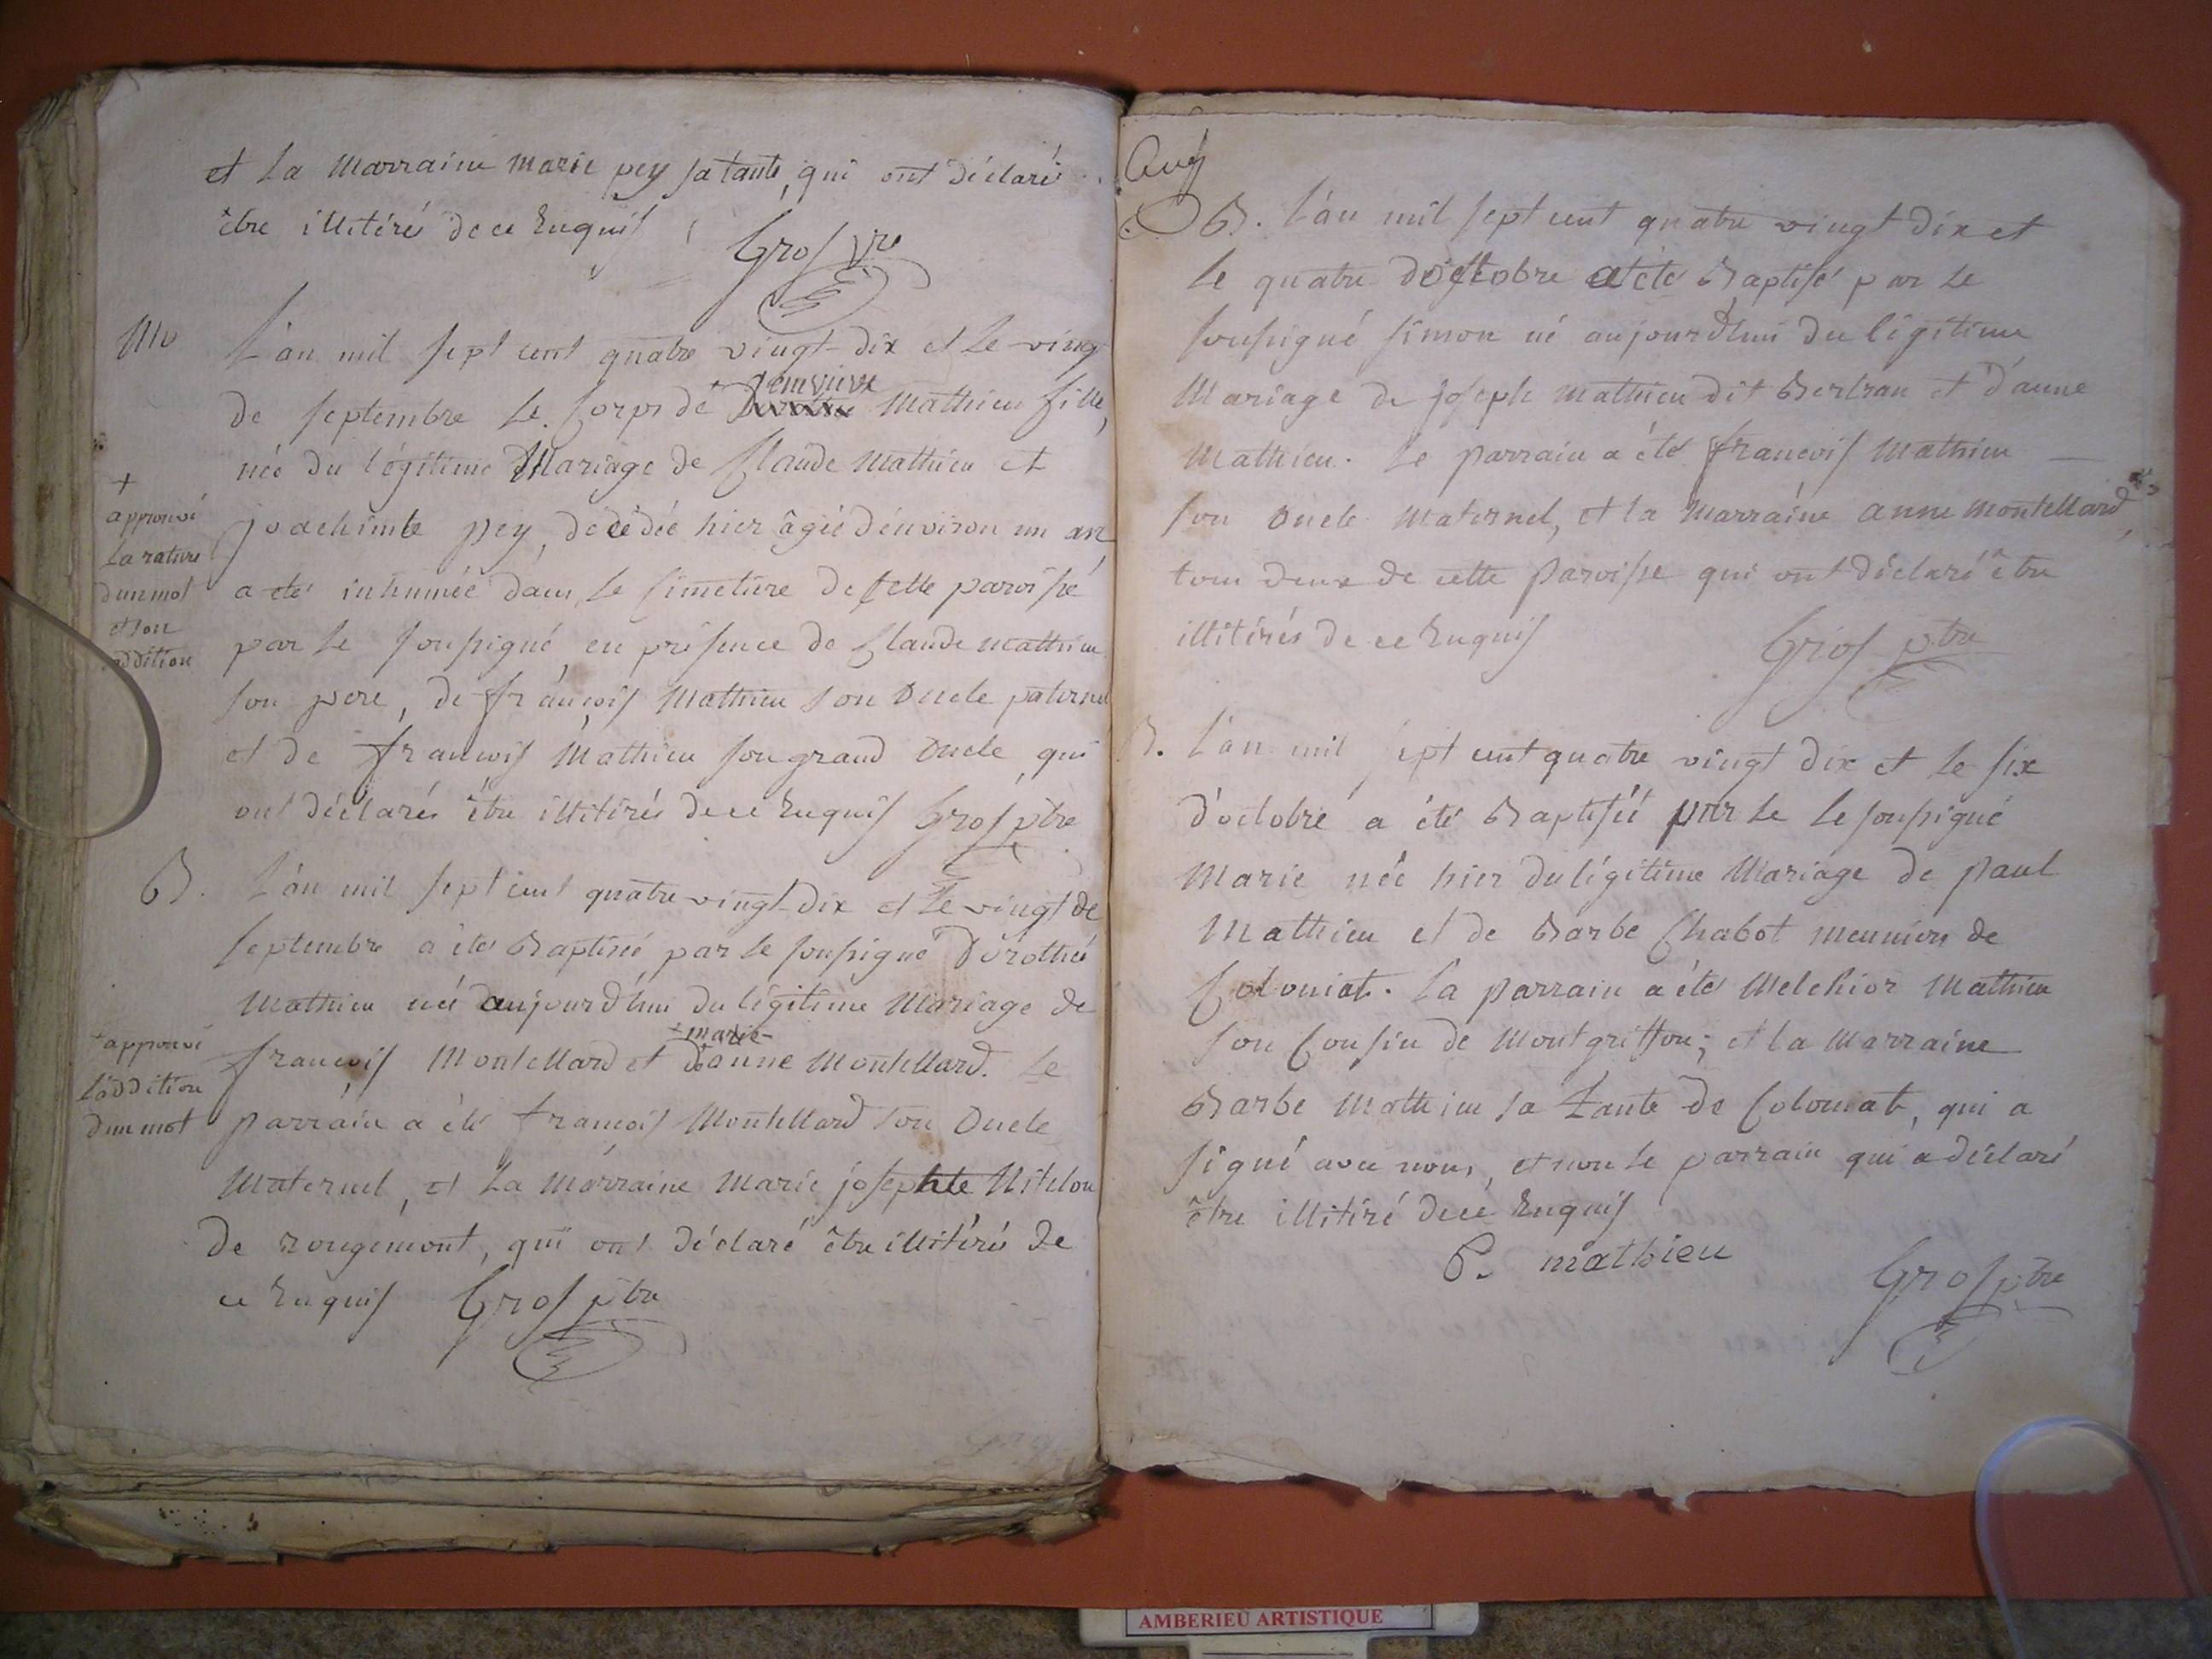 et La Marraine Marie pey sa tante, qui ont déclaré
être illitéré de ce Enquis
Gros ptre
L'an mil sept cent quatre vingt-dix et Le ving
de septembre Le Corps de + genevieve Mathieu fille,
née du légitime Mariage de Claude Mathieu et
joachimte pey, décédée hier âgée d'environ un an
a eté inhumée dans Le Cimetiere de Cette paroisse
par Le soussigné, en présence de Claude Mathieu
son pere, de françois Mathieu son Oncle paternel
et de françois Mathieu son grand Oncle, qui
ont déclarés être illitirés de ce Enquis Gros ptre
+
approuvé
La rature
d'un mot
et son
addition
B. L'an mil sept cent quatre vingt-dix et Le vingt de
septembre a été Baptisée par Le soussigné Dorothée
Mathieu née aujourd'hui du légitime Mariage de
+ marie
françois Montellard et d'anne Montellard. Le
parrain a été françois Montellard son Oncle
Maternel, et La Marraine Marie josephte Nitelon
De rougemont, qui ont déclaré être illitérés de
ce Enquis Gros ptre
+ approuvé
l'addition
d'un mot
B. L'an mil sept cent quatre vingt dix et
Le quatre d'octobre a eté Baptisé par Le
soussigné simon né aujourd'hui du légitime
Mariage de joseph Mathieu dit Bertran et d'anne
Mathieu. Le parrain a été françois Mathieu
son Oncle Maternel, et la Marraine anne Montellard,
tous deux de cette Paroisse qui ont déclaré être
illitirés de ce Enquis
Gros ptre
B. L'an mil sept cent quatre vingt dix et Le six
d'octobre a été Baptisée par Le Le soussigné
Marie née hier du légitime Mariage de Paul
Mathieu et de Barbe Chabot meuniers de
Coloniat. La parrain a été Melchior Mathieu
son Cousin de Montgriffon; et la Marraine
Barbe Mathieu sa Tante de Coloniat, qui a
signé avec nous, et non Le parrain qui a déclaré
être illitiré de ce Enquis
P. mathieu
Gros ptre
AMBERIEU ARTISTIQUE